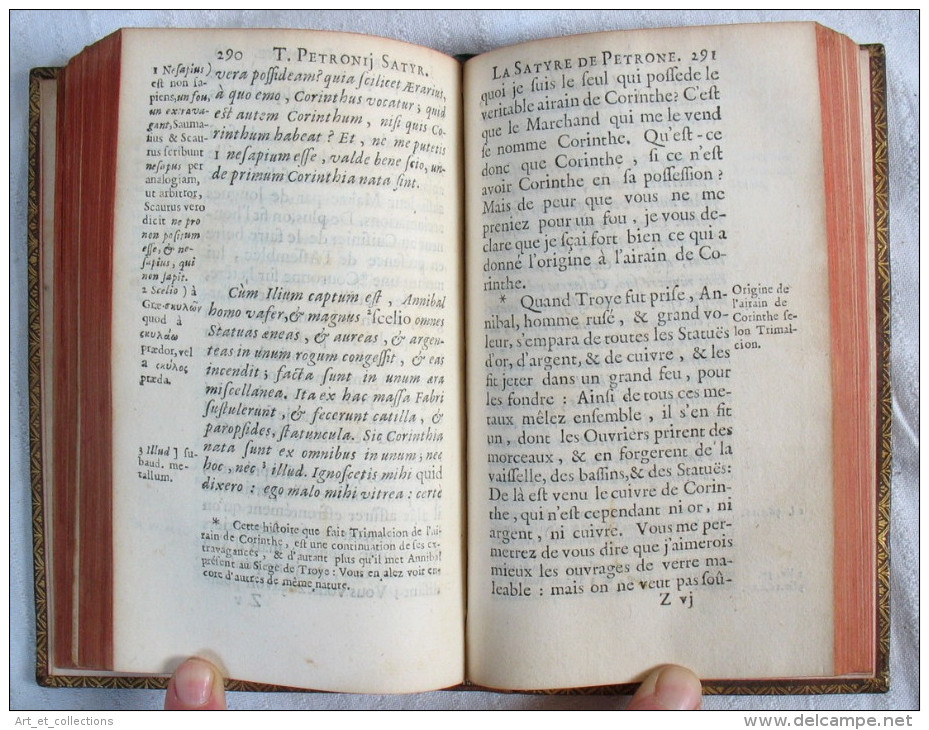 290 T. PETRONIJ SATYR.
vera possideam? quia scilicet Ærarius,
à quo emo, Corinthus vocatur; quid
est autem Corinthum, nisi quis Co-
rinthum habeat? Et, ne me putetis
1 nesapium esse, valde bene scio, un-
de primum Corinthia nata sint.
Cùm Ilium captum est, Annibal
homo vafer, & magnus ²scelio omnes
Statuas æneas, & aureas, & argen-
teas in unum rogum congessit, & eas
incendit; facta sunt in unum æra
miscellanea. Ita ex hac massa Fabri
sustulerunt, & fecerunt catilla, &
paropsides, statuncula. Sic Corinthia
nata sunt ex omnibus in unum; nec
hoc, nec ³ illud. Ignoscetis mihi quid
dixero: ego malo mihi vitrea: certe
1 Nesapius)
est non sa-
piens, un fou,
un extrava-
gant, Sauma-
sius & Scau-
rus scribunt
nesapus per
analogiam,
ut arbitror,
Scaurus vero
dicit ne pro
non positum
esse, & ne-
sapius, qui
non sapit.
2 Scelio) à
Græ. σκυλῶν
quod à
σκυλάω
prædor, vel
à σκύλος
præda.
3 Illud] su-
baud. me-
tallum.
* Cette histoire que fait Trimalcion de l'ai-
rain de Corinthe, est une continuation de ses ex-
travagances, & d'autant plus qu'il met Annibal
présent au Siege de Troye: Vous en alez voir en-
core d'autres de même nature.
Z v
LA SATYRE DE PETRONE. 291
quoi je suis le seul qui possede le
veritable airain de Corinthe? C'est
que le Marchand qui me le vend
se nomme Corinthe. Qu'est-ce
donc que Corinthe, si ce n'est
avoir Corinthe en sa possession?
Mais de peur que vous ne me
preniez pour un fou, je vous de-
clare que je sçai fort bien ce qui a
donné l'origine à l'airain de Co-
rinthe.
* Quand Troye fut prise, An-
nibal, homme rusé, & grand vo-
leur, s'empara de toutes les Statuës
d'or, d'argent, & de cuivre, & les
fit jeter dans un grand feu, pour
les fondre: Ainsi de tous ces me-
taux mêlez ensemble, il s'en fit
un, dont les Ouvriers prirent des
morceaux, & en forgerent de la
vaisselle, des bassins, & des Statuës:
De là est venu le cuivre de Corin-
the, qui n'est cependant ni or, ni
argent, ni cuivre. Vous me per-
metrez de vous dire que j'aimerois
mieux les ouvrages de verre ma-
leable: mais on ne veut pas soû-
Z vj
Origine de
l'airain de
Corinthe se-
lon Trimal-
cion.
Art_et_collections
www.delcampe.net